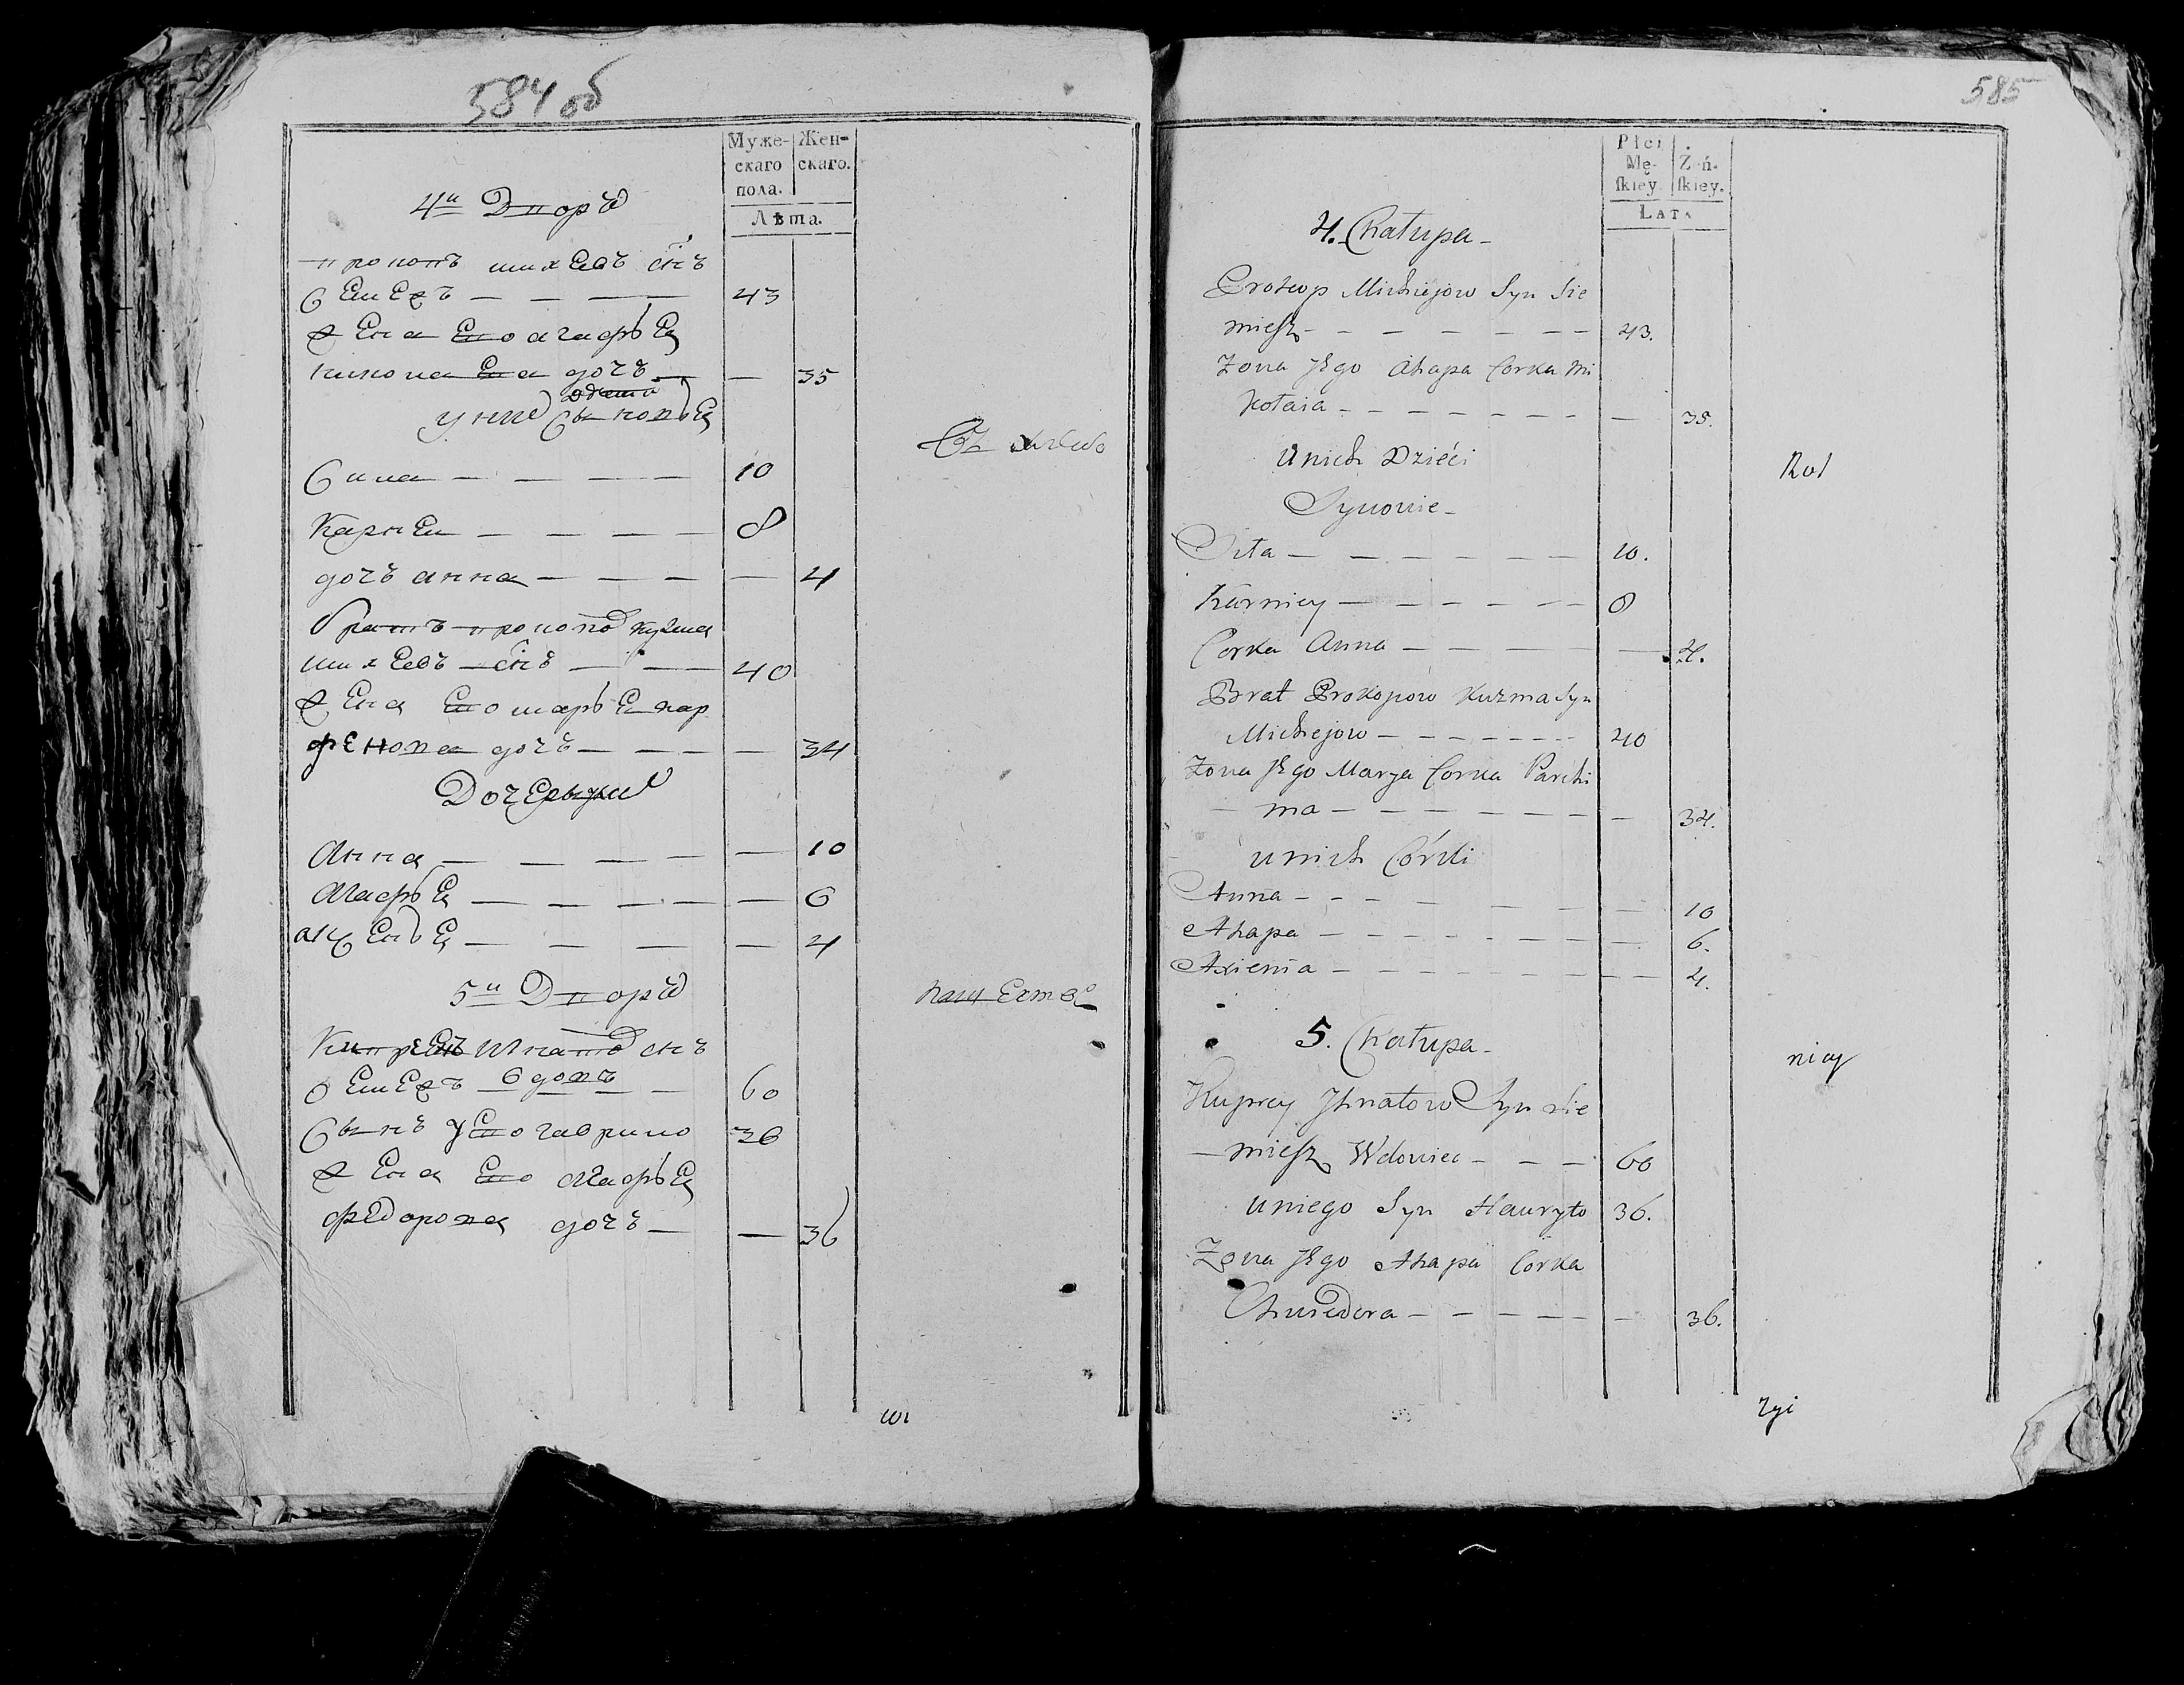 584 об
Муже-
скаго
пола.
Жен-
скаго.
Лѣта.
4й Дворъ
Прокопъ михеевъ снъ
Семежъ — — — — 43
жена Его агафья
николаева дочь — — 35
у нихъ Сыновья
Сила — — — — 10
Карней — — — — 8
дочь анна — — — — 4
братъ прокоповъ кузма
михеевъ снъ — — 40
жена Его марья пар
фенова дочь — — — — 34
Дочерьи
Анна — — — — — 10
Агафья — — — — — 6
аксенья — — — — — 4
5й Дворъ
Купрей Игнатовъ снъ
Семежъ вдовъ — 60
Сынъ у Его гаврило 36
жена Его Агафья
федорова дочь — — 36
585
Płci
Mę-
ſkiey.
Żeń-
ſkiey.
LATA
4. Chałupa -
Prokop Michiejow Syn Sie
mieſz - - - - - - - 43.
Zona Jego Ahapa Corka Mi
kołaia - - - - - - - — 35.
U nich Dzieći
Synowie -
Siła — — — — — — 10.
Karniey — — — — — — 8
Corka Anna — — — — — 4.
Brat Prokopow Kuzma Syn
Michiejow - - - - - - - 40
Zona Jego Marya Corka Parchi
ma - - - - - - - — 34.
u nich Córki
Anna - - - — — — — 10
Ahapa — - - - - - - — 6.
Axienia — - - - - - - — 4.
5. Chałupa -
Kuprey Jhnatow Syn Sie
mieſz Wdowiec - — - 60
u niego Syn Hauryło 36.
Zona Jego Ahapa Corka
Chwiedora - - - - - — 36.
Rol
nicy
Zyi